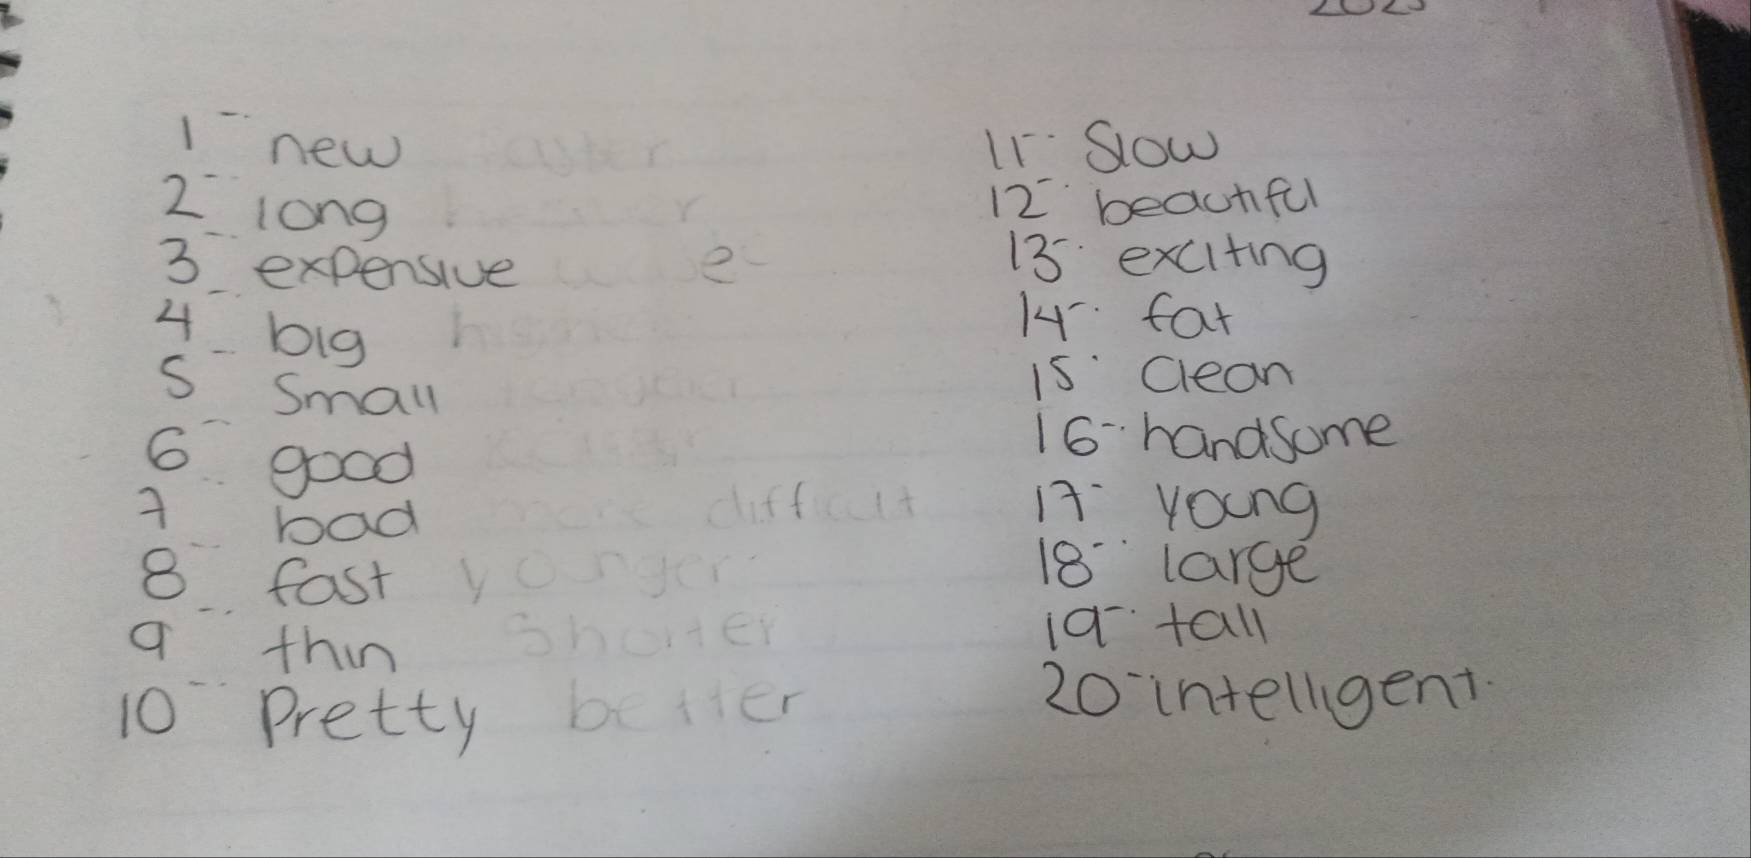 1- new
2- long
3- expensive
4- big
5- Small
6- good
7 bad
8- fast
9- thin
10- Pretty
11- Slow
12- beautiful
13- exciting
14- fat
15- Clean
16- handsome
17- young
18- large
19- tall
20- intelligent.
more difficult
younger
Shorter
better